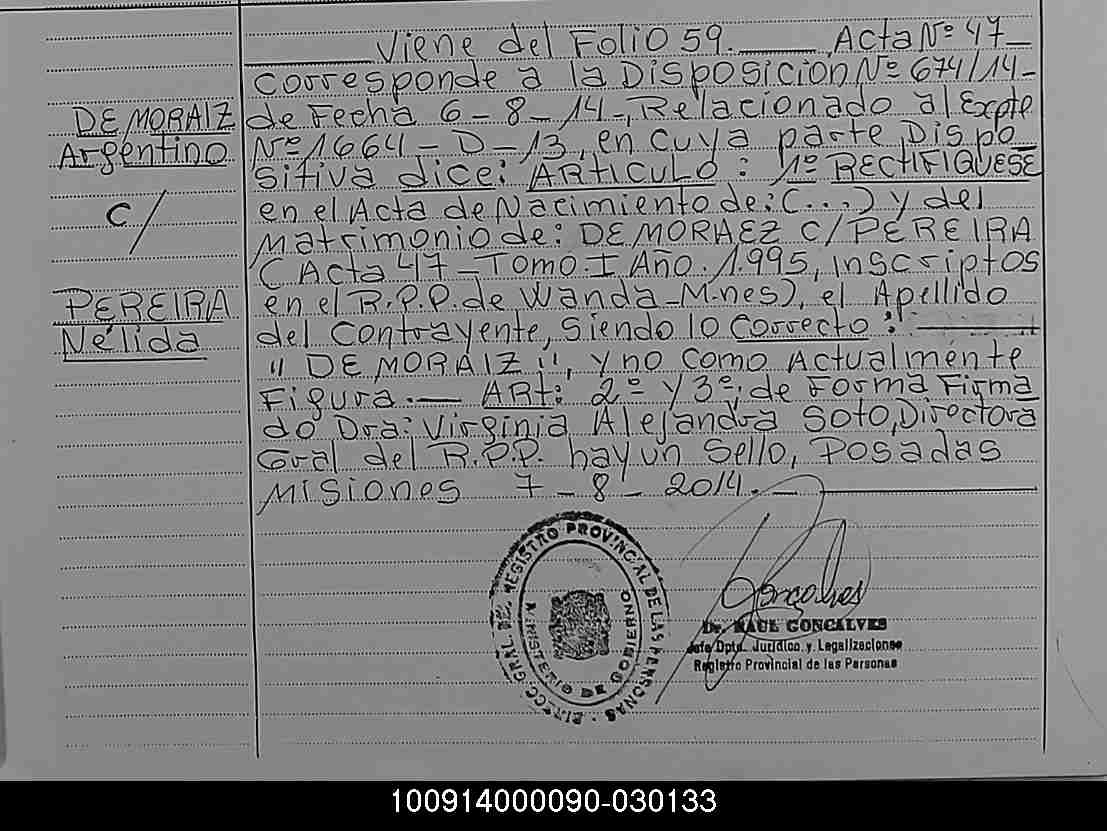 Viene del Folio 59. Acta Nº 47
Corresponde a la Disposición Nº 674/14-
de Fecha 6-8-14-, Relacionado al Expte
Nº 1664-D-13, en cuya parte Dispo
sitiva dice: ARTICULO: 1º RECTIFIQUESE
en el Acta de Nacimiento de: (...) y del
Matrimonio de: DE MORAEZ C/PEREIRA
(Acta 47-Tomo.I Año.1.995, inscriptos
en el R.P.P. de Wanda-M-nes), el Apellido
del Contrayente, siendo lo correcto:
"DE MORAIZ", y no como Actualmente
Figura.- ART: 2º y 3º; de Forma Firma
do Dra: Virginia Alejandra Soto, Directora
Gral del R.P.P. hay un Sello, Posadas
Misiones 7-8-2014.-
DE MORAIZ
Argentino
C/
PEREIRA
Nélida
DIRECC. GRAL. DEL REGISTRO PROVINCIAL DE LAS PERSONAS
MINISTERIO DE GOBIERNO
Goncalves
Dr. RAUL GONCALVES
Jefe Dpto. Jurídico y Legalizaciones
Registro Provincial de las Personas
100914000090-030133